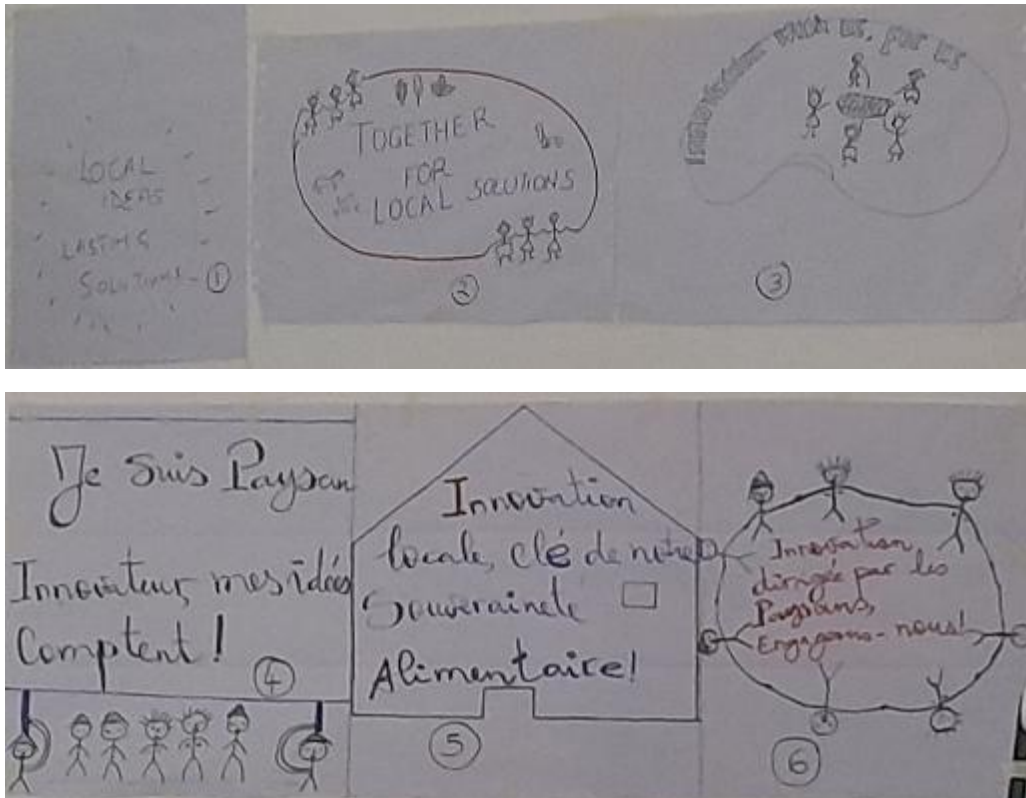 LOCAL
IDEAS
LASTING
SOLUTIONS - ①
TOGETHER
FOR
LOCAL SOLUTIONS
②
Innovation with us, for us
③
Je Suis Paysan
Innovateur, mes idées
Comptent !
④
Innovation
locale, clé de notre
Souveraineté
Alimentaire!
⑤
Innovation
dirigée par les
Paysans,
Engageons-nous!
⑥